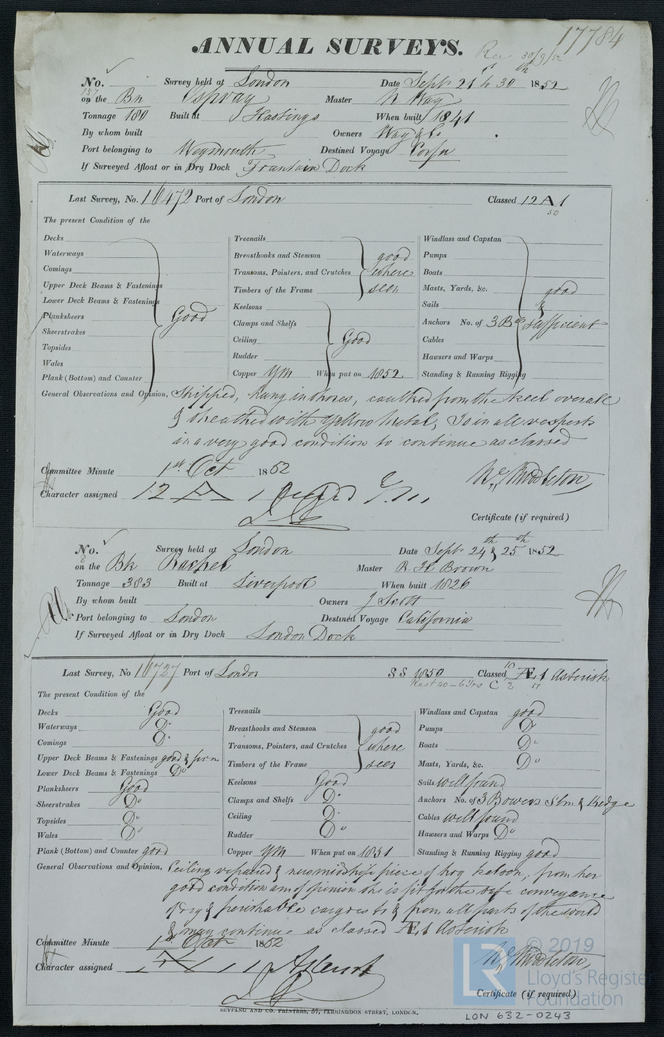 17784
ANNUAL SURVEYS.
No. Survey held at London Date Sept 21 to 30 1852
on the Bn Master
Tonnage 180 Built at Hastings When built 1841
By whom built Owners Way & Co
Port belonging to Weymouth Destined Voyage
If Surveyed Afloat or in Dry Dock Fountain Dock
Last Survey, No. 16472 Port of London Classed 12 A 1
The present Condition of the
Decks
Waterways
Comings
Upper Deck Beams & Fastenings
Lower Deck Beams & Fastenings
Planksheers Good
Sheerstrakes
Topsides
Wales
Plank (Bottom) and Counter
Treenails
Breasthooks and Stemson good
Transoms, Pointers, and Crutches where
Timbers of the Frame seen
Keelsons
Clamps and Shelfs
Ceiling Good
Rudder
Copper YM When put on 1852
Windlass and Capstan
Pumps
Boats
Masts, Yards, &c. good
Sails &
Anchors No. of 3 sufficient
Cables
Hawsers and Warps
Standing & Running Rigging
General Observations and Opinion, Stripped, hung in horso, caulked from the keel overall
& sheathed with Yellow Metal, Is in all respects
in a very good condition to continue as classed
Committee Minute 1st Oct 1852
Character assigned 12 A 1
Certificate (if required)
No. Survey held at London Date Sept 24th & 25th 1852
on the Bk Master Brown
Tonnage 383 Built at Liverpool When built 1826
By whom built Owners J Scott
Port belonging to London Destined Voyage California
If Surveyed Afloat or in Dry Dock London Dock
Last Survey, No 16727 Port of London SS 1850 Classed Æ 1 Asterisk
The present Condition of the
Decks Good
Waterways Do
Comings Do
Upper Deck Beams & Fastenings good &
Lower Deck Beams & Fastenings Do
Planksheers Good
Sheerstrakes Do
Topsides Do
Wales Do
Plank (Bottom) and Counter good
Treenails
Breasthooks and Stemson good
Transoms, Pointers, and Crutches where
Timbers of the Frame seen
Keelsons Good
Clamps and Shelfs Do
Ceiling Do
Rudder Do
Copper YM When put on 1851
Windlass and Capstan good
Pumps Do
Boats Do
Masts, Yards, &c. Do
Sails well found
Anchors No. of 3 Bowers Stm & Kedge
Cables well found
Hawsers and Warps Do
Standing & Running Rigging good
General Observations and Opinion, Ceiling repaired & new midship piece of hog kelson, from her
good condition am of opinion she is fit for the safe conveyance
of dry & perishable cargoes to & from all parts of the world
& may continue as classed Æ 1 Asterisk
Committee Minute 1st Oct 1852
Character assigned
Certificate (if required)
SEYFANG AND CO. PRINTERS, 57, FARRINGDON STREET, LONDON.
LON 632-0243
© 2019
LR
Lloyd's Register
Foundation